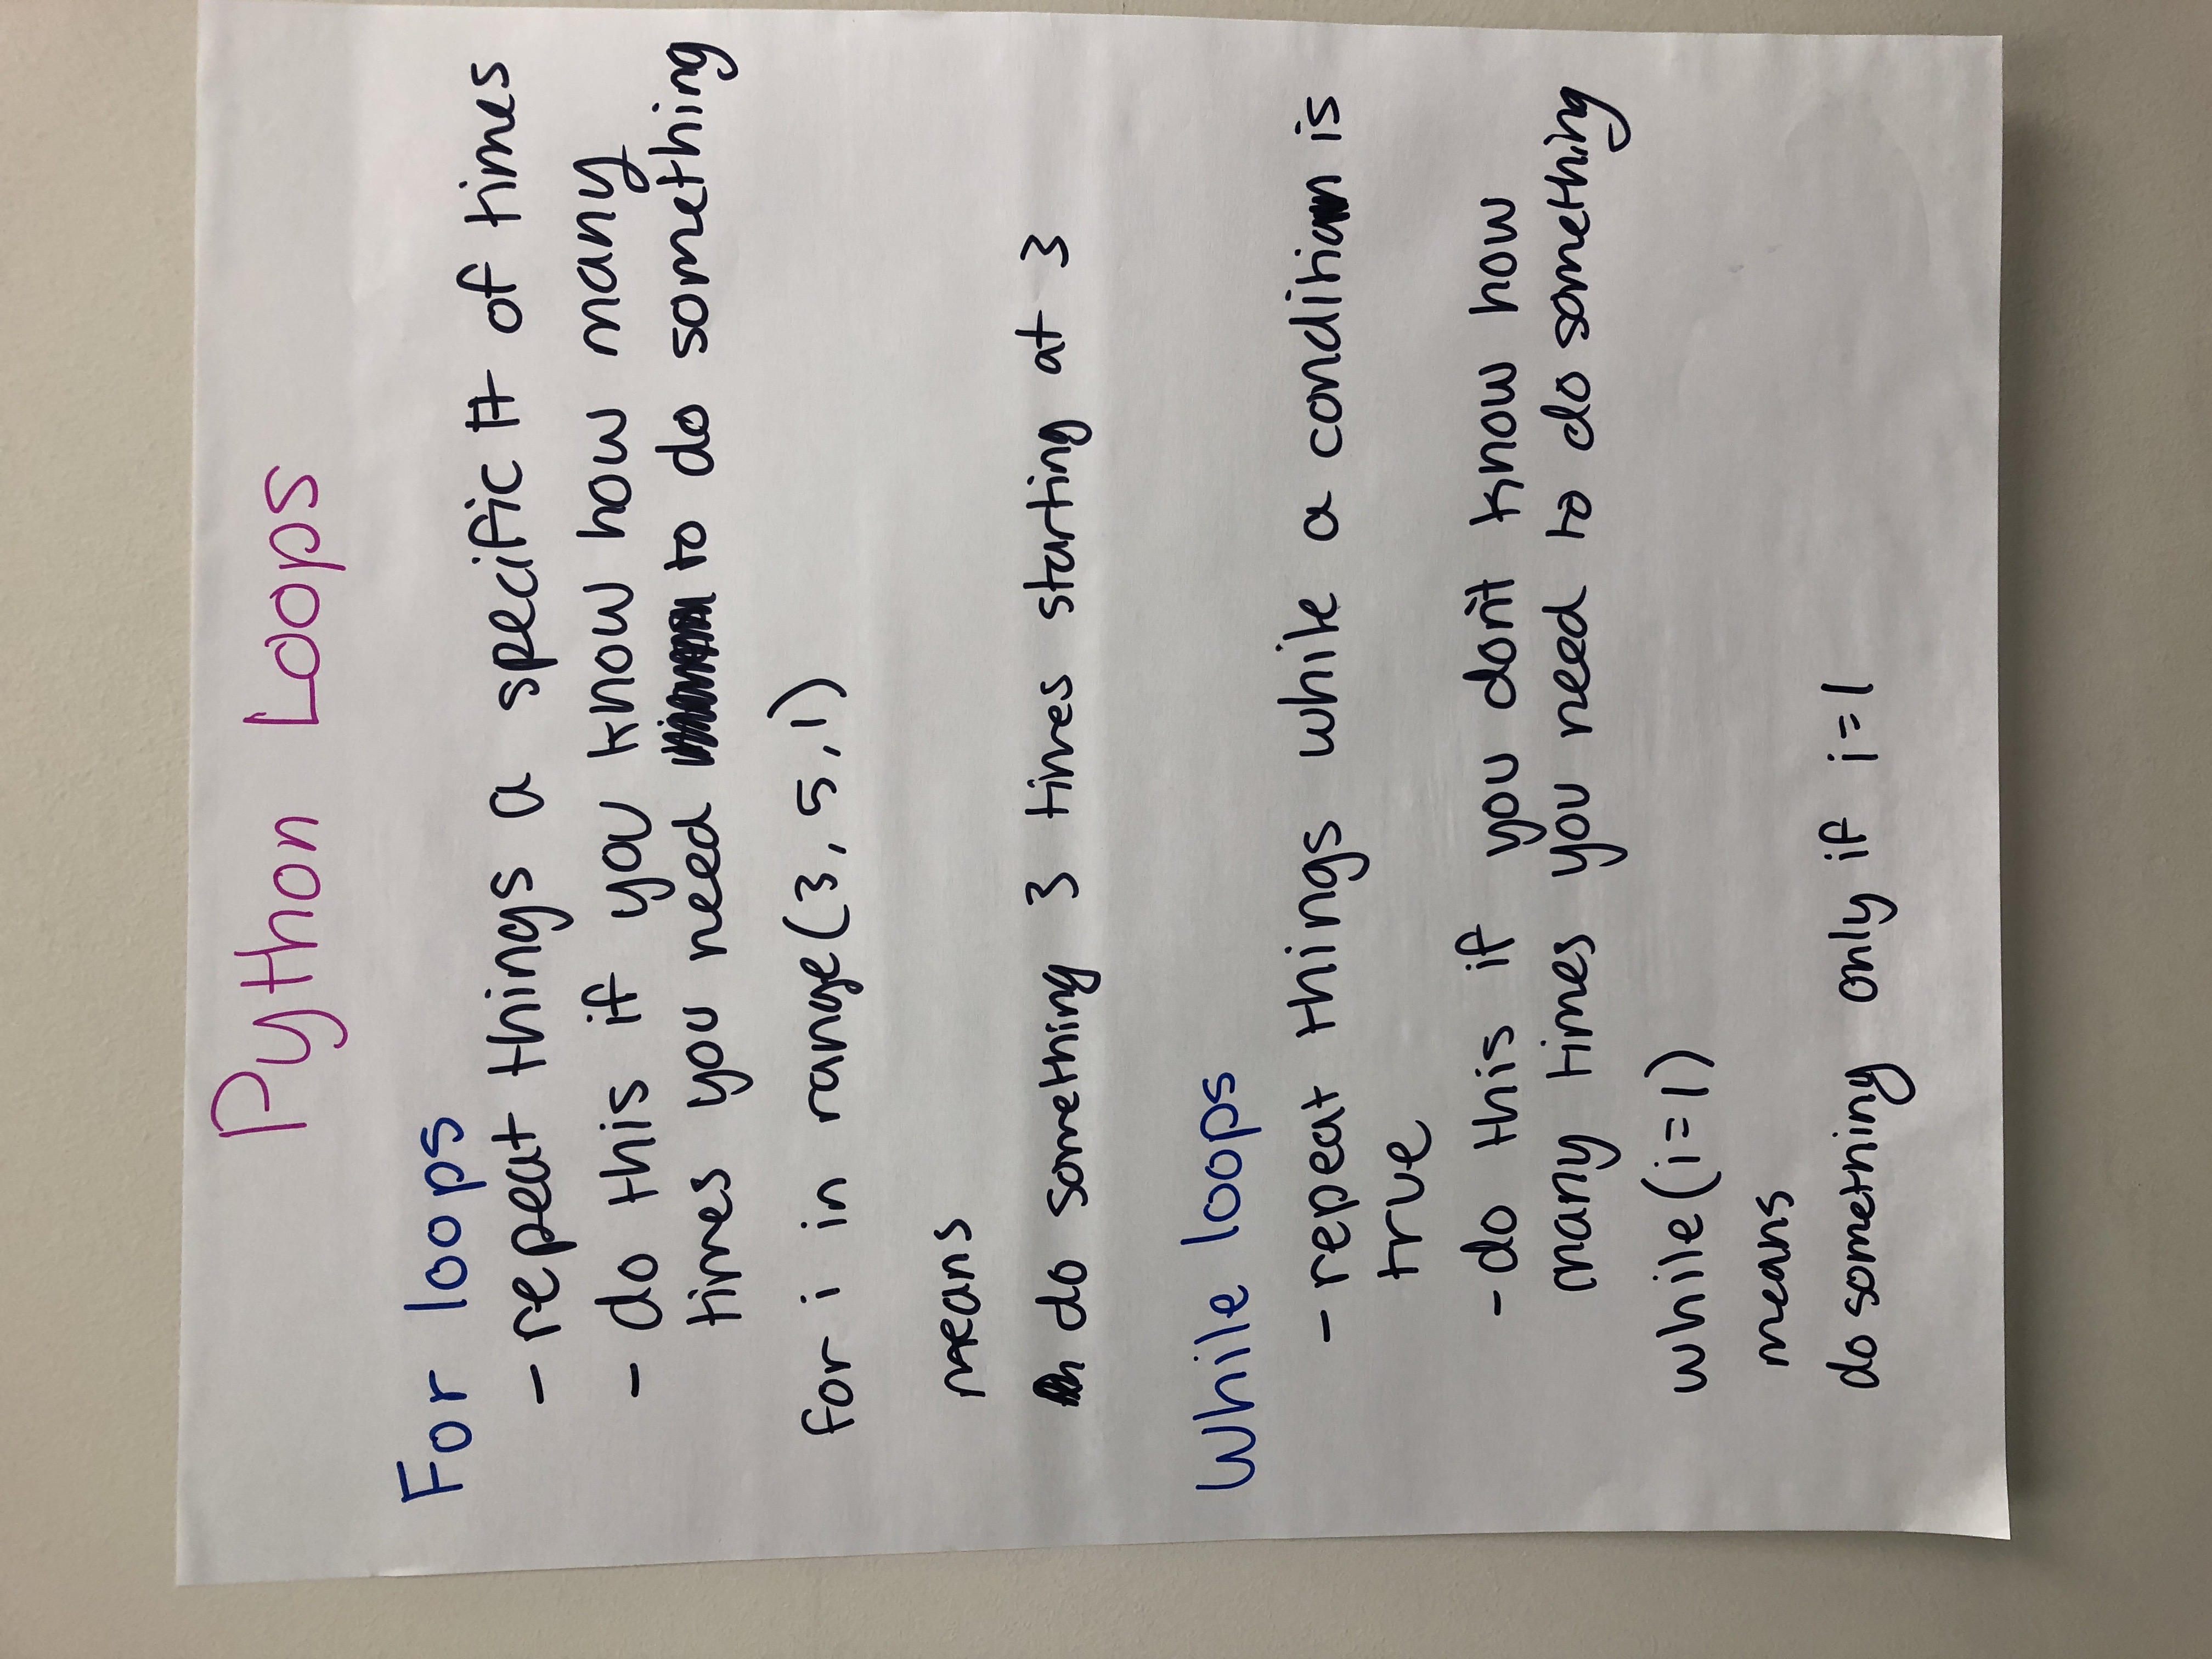 Python Loops
For loops
- repeat things a specific # of times
- do this if you know how many
times you need to do something
for i in range(3, 5, 1)
means
do something 3 times starting at 3
While loops
- repeat things while a condition is
true
- do this if you don't know how
many times you need to do something
while(i=1)
means
do something only if i=1